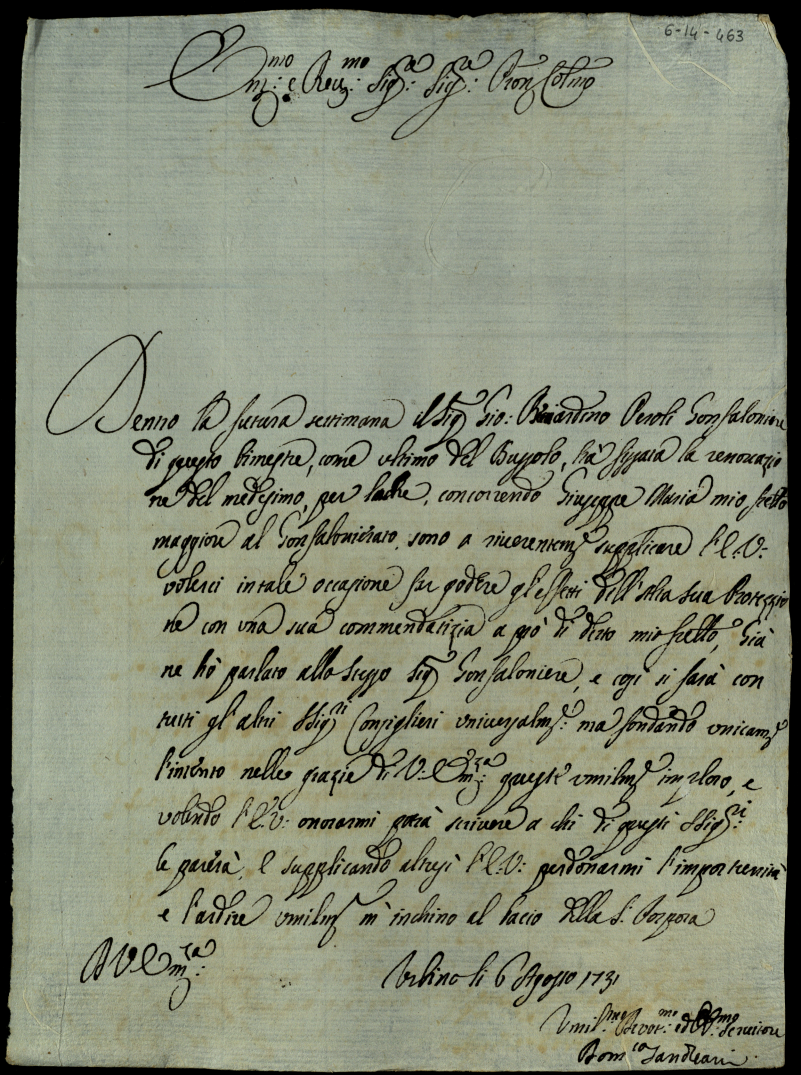 6-14-463
Em:mo e Rev:mo Sig:re Sig:re Pron Colmo
Dentro la futura settimana il Sig Gio: Bernardino Peroli Gonfaloniere
di questo bimestre, come ultimo del Bussolo, hà fissata la renouazio
ne del medesimo, per loche, concorrendo Giuseppe Maria mio fratello
maggiore al Gonfalonierato, sono a riuerentem: supplicare l'E: V:
volerci in tale occasione far godere gl'effetti dell'Alta sua Protezzio
ne con una sua commendatizia a prò di detto mio fratello, Già
ne hò parlato allo stesso Sig Gonfaloniere, e così si farà con
tutti gl'altri SSig:ri Consiglieri vniuersalm: ma fondando vnicam
l'intento nelle grazie di V: Em:za queste vmilm imploro, e
volendo l'E: V: onorarmi potrà scriuere a chi di questi SSig:ri
le parerà, E supplicando altresì l'E: V: perdonarmi l'importunità
e l'ardire vmilm m'inchino al bacio della S: Porpora
D V Em:za
Urbino li 6 Agosto 1731
Vmil:mo Deuot:mo ed Obb:mo Seruitore
Dom:co